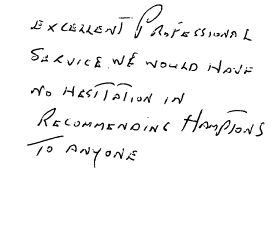 EXCELLENT PROFESSIONAL
SERVICE WE WOULD HAVE
NO HESITATION IN
RECOMMENDING HAMPTONS
TO ANYONE